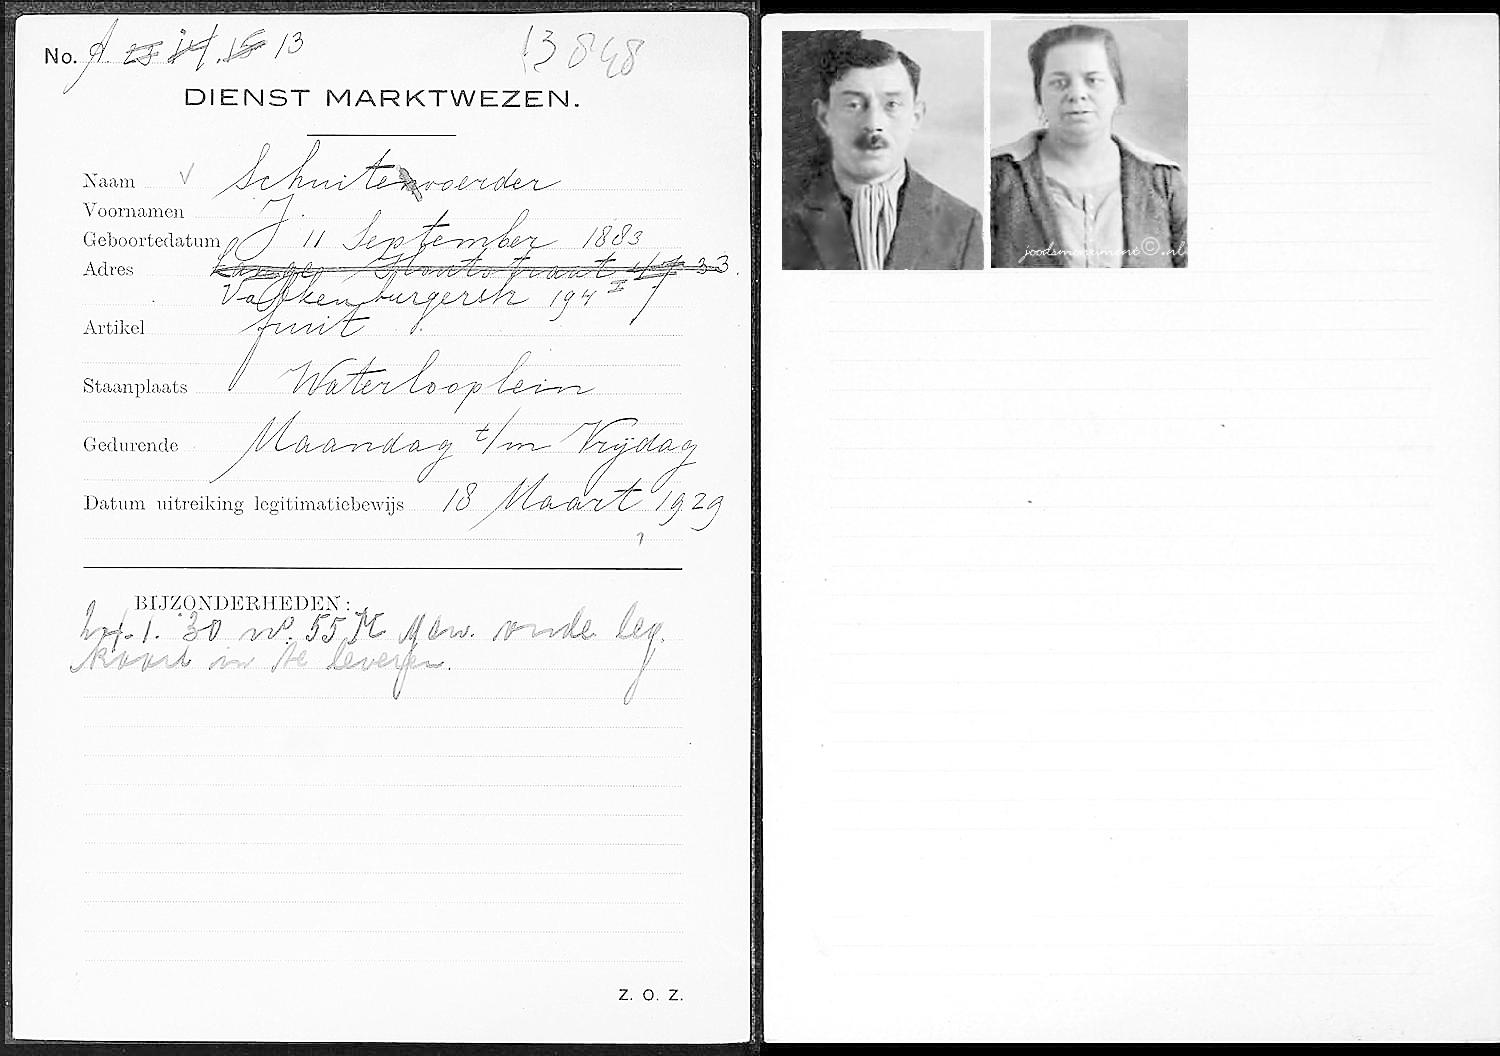 No. A. 23 14. 15 13
13848
DIENST MARKTWEZEN.
Naam V Schuitenvoerder
Voornamen J.
Geboortedatum 11 September 1883
Adres Lange Houtstraat 47 33.
Valkenburgerstr 194 I
Artikel fruit
Staanplaats Waterlooplein
Gedurende Maandag t/m Vrijdag
Datum uitreiking legitimatiebewijs 18 Maart 1929
BIJZONDERHEDEN:
1. 30 no. 55 M oude leg.
kaart in te leveren.
Z. O. Z.
joodsmonument©.nl